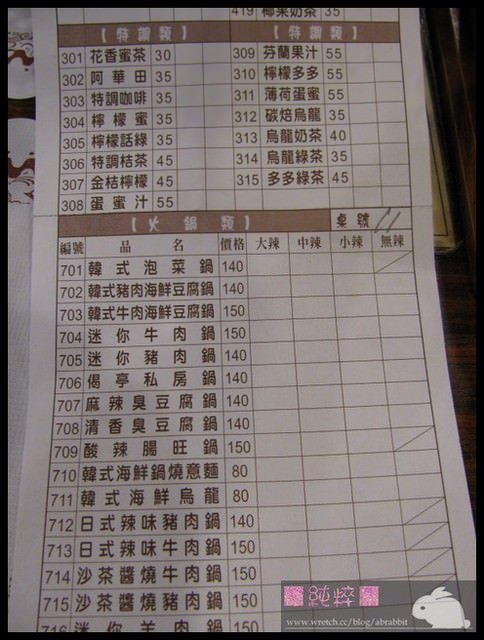 419 椰果奶茶 35
【特調類】 【特調類】
301 花香蜜茶 30 309 芬蘭果汁 55
302 阿華田 35 310 檸檬多多 55
303 特調咖啡 35 311 薄荷蛋蜜 55
304 檸檬蜜 35 312 碳焙烏龍 35
305 檸檬話綠 35 313 烏龍奶茶 40
306 特調桔茶 45 314 烏龍綠茶 35
307 金桔檸檬 45 315 多多綠茶 45
308 蛋蜜汁 55
【火鍋類】 桌號 11
編號 品名 價格 大辣 中辣 小辣 無辣
701 韓式泡菜鍋 140
702 韓式豬肉海鮮豆腐鍋 140
703 韓式牛肉海鮮豆腐鍋 150
704 迷你牛肉鍋 150
705 迷你豬肉鍋 140
706 偈亭私房鍋 140
707 麻辣臭豆腐鍋 140
708 清香臭豆腐鍋 140
709 酸辣腸旺鍋 150
710 韓式海鮮鍋燒意麵 80
711 韓式海鮮烏龍 80
712 日式辣味豬肉鍋 140
713 日式辣味牛肉鍋 150
714 沙茶醬燒牛肉鍋 150
715 沙茶醬燒豬肉鍋 150
716 迷你羊肉鍋 150
純粹
www.wretch.cc/blog/abrabbit